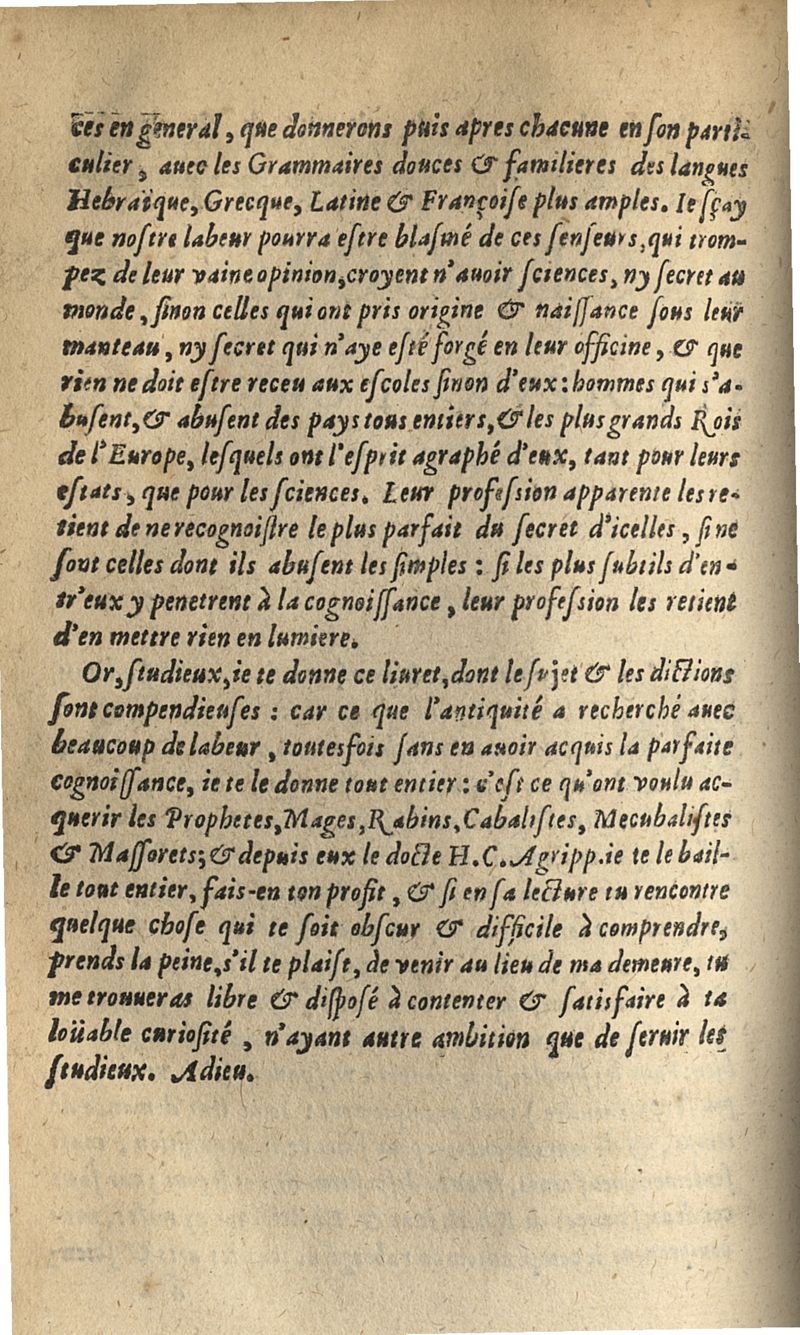 ces en general, que donnerons puis apres chacune en ſon parti-
culier, auec les Grammaires douces & familieres des langues
Hebraïque, Grecque, Latine & Françoiſe plus amples. Ie ſçay
que noſtre labeur pourra eſtre blaſmé de ces ſenſeurs, qui trom-
pez de leur vaine opinion, croyent n'auoir ſciences, ny ſecret au
monde, ſinon celles qui ont pris origine & naiſſance ſous leur
manteau, ny ſecret qui n'aye eſté forgé en leur officine, & que
rien ne doit eſtre receu aux eſcoles ſinon d'eux: hommes qui s'a-
buſent, & abuſent des pays tous entiers, & les plus grands Rois
de l'Europe, leſquels ont l'eſprit agraphé d'eux, tant pour leurs
eſtats, que pour les ſciences. Leur profeſſion apparente les re-
tient de ne recognoiſtre le plus parfait du ſecret d'icelles, ſi ne
ſont celles dont ils abuſent les ſimples : ſi les plus ſubtils d'en-
tr'eux y penetrent à la cognoiſſance, leur profeſſion les retient
d'en mettre rien en lumiere.
Or, ſtudieux, ie te donne ce liuret, dont le ſujet & les dictions
ſont compendieuſes : car ce que l'antiquité a recherché auec
beaucoup de labeur, toutesfois ſans en auoir acquis la parfaite
cognoiſſance, ie te le donne tout entier : c'eſt ce qu'ont voulu ac-
querir les Prophetes, Mages, Rabins, Cabaliſtes, Mecubaliſtes
& Maſſorets; & depuis eux le docte H. C. Agripp. ie te le bail-
le tout entier, fais-en ton profit, & ſi en ſa lecture tu rencontre
quelque choſe qui te ſoit obſcur & difficile à comprendre,
prends la peine, s'il te plaiſt, de venir au lieu de ma demeure, tu
me trouueras libre & diſpoſé à contenter & ſatisfaire à ta
loüable curioſité, n'ayant autre ambition que de ſeruir les
ſtudieux. Adieu.